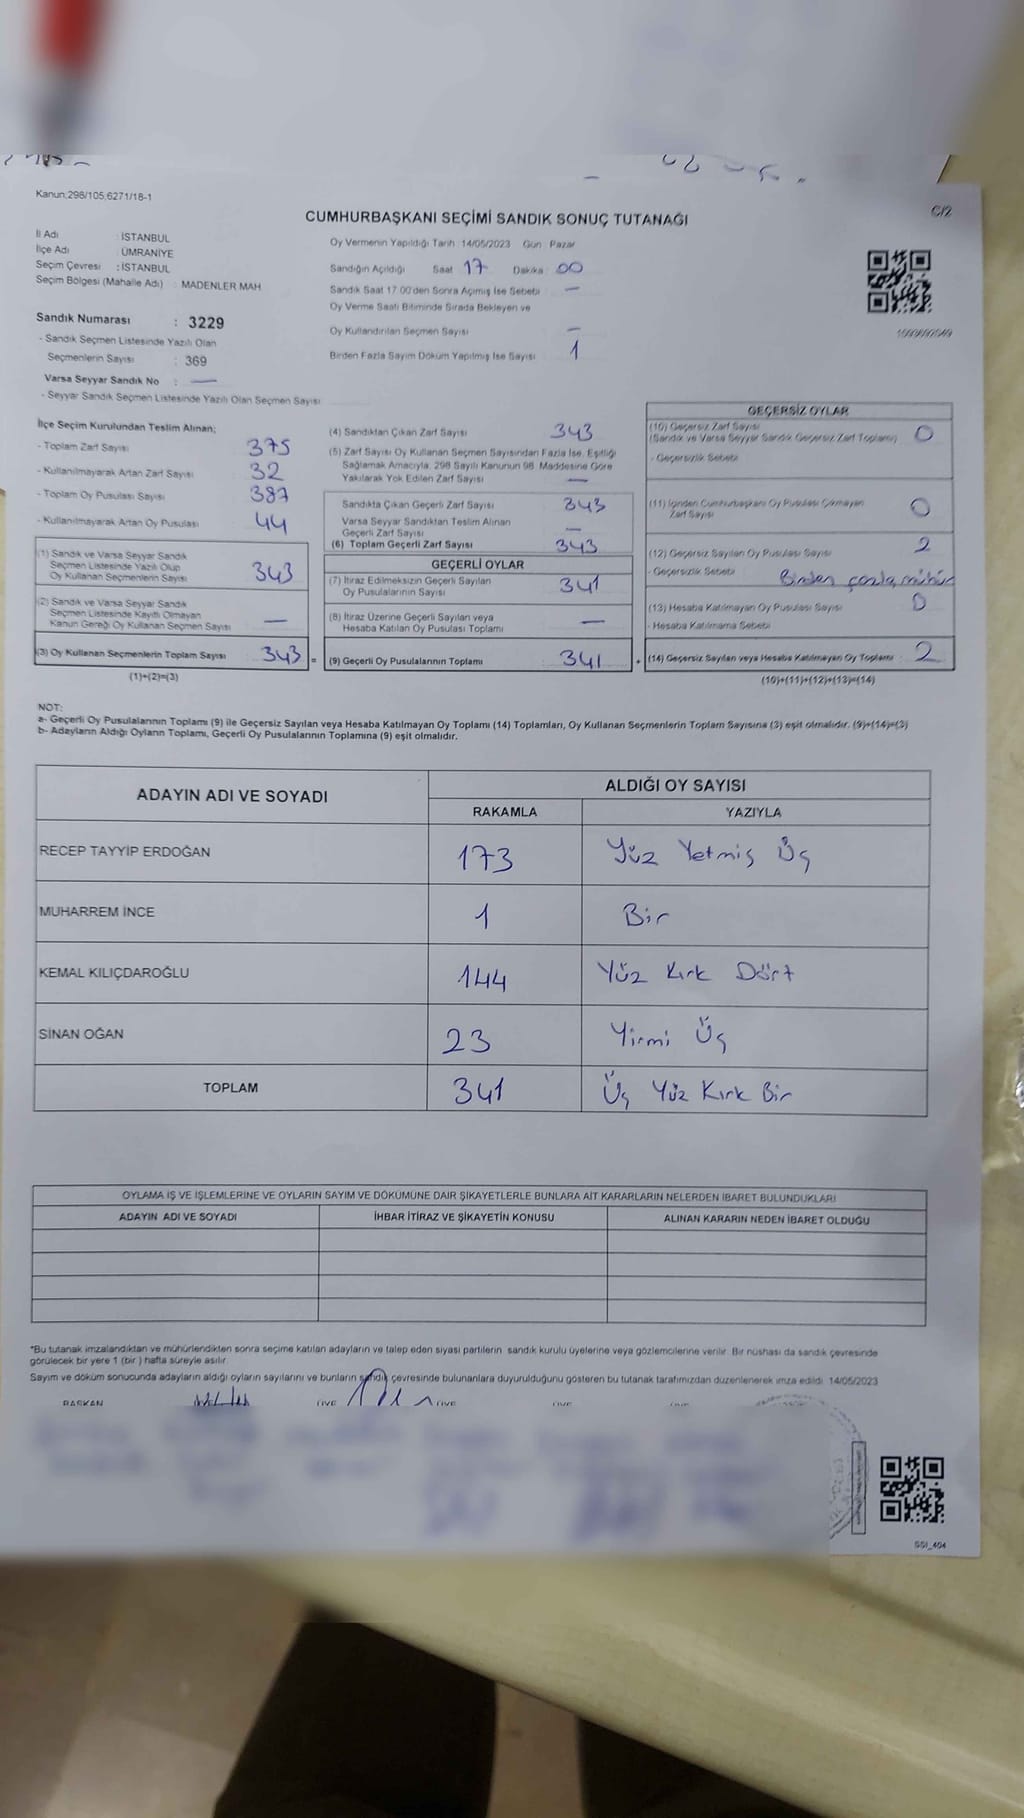 Kanun:298/105,6271/18-1
C/2
CUMHURBAŞKANI SEÇİMİ SANDIK SONUÇ TUTANAĞI
İl Adı : İSTANBUL
İlçe Adı : ÜMRANİYE
Seçim Çevresi : İSTANBUL
Seçim Bölgesi (Mahalle Adı) : MADENLER MAH
Sandık Numarası : 3229
- Sandık Seçmen Listesinde Yazılı Olan
Seçmenlerin Sayısı : 369
Varsa Seyyar Sandık No : —
- Seyyar Sandık Seçmen Listesinde Yazılı Olan Seçmen Sayısı
Oy Vermenin Yapıldığı Tarih : 14/05/2023 Gün : Pazar
Sandığın Açıldığı Saat 17 Dakika 00
Sandık Saat 17:00'den Sonra Açılmış İse Sebebi : —
Oy Verme Saati Bitiminde Sırada Bekleyen ve
Oy Kullandırılan Seçmen Sayısı —
Birden Fazla Sayım Döküm Yapılmış İse Sayısı 1
İlçe Seçim Kurulundan Teslim Alınan;
- Toplam Zarf Sayısı 375
- Kullanılmayarak Artan Zarf Sayısı 32
- Toplam Oy Pusulası Sayısı 387
- Kullanılmayarak Artan Oy Pusulası 44
(1) Sandık ve Varsa Seyyar Sandık
Seçmen Listesinde Yazılı Olup
Oy Kullanan Seçmenlerin Sayısı 343
(2) Sandık ve Varsa Seyyar Sandık
Seçmen Listesinde Kayıtlı Olmayan
Kanun Gereği Oy Kullanan Seçmen Sayısı —
(3) Oy Kullanan Seçmenlerin Toplam Sayısı 343 =
(1)+(2)=(3)
(4) Sandıktan Çıkan Zarf Sayısı 343
(5) Zarf Sayısı Oy Kullanan Seçmen Sayısından Fazla İse, Eşitliği
Sağlamak Amacıyla, 298 Sayılı Kanunun 98. Maddesine Göre
Yakılarak Yok Edilen Zarf Sayısı —
Sandıkta Çıkan Geçerli Zarf Sayısı 343
Varsa Seyyar Sandıktan Teslim Alınan
Geçerli Zarf Sayısı —
(6) Toplam Geçerli Zarf Sayısı 343
GEÇERLİ OYLAR
(7) İtiraz Edilmeksizin Geçerli Sayılan
Oy Pusulalarının Sayısı 341
(8) İtiraz Üzerine Geçerli Sayılan veya
Hesaba Katılan Oy Pusulası Toplamı —
(9) Geçerli Oy Pusulalarının Toplamı 341 +
GEÇERSİZ OYLAR
(10) Geçersiz Zarf Sayısı 0
(Sandık ve Varsa Seyyar Sandık Geçersiz Zarf Toplamı)
- Geçersizlik Sebebi
(11) İçinden Cumhurbaşkanı Oy Pusulası Çıkmayan
Zarf Sayısı 0
(12) Geçersiz Sayılan Oy Pusulası Sayısı 2
- Geçersizlik Sebebi Birden fazla mühür
(13) Hesaba Katılmayan Oy Pusulası Sayısı 0
- Hesaba Katılmama Sebebi
(14) Geçersiz Sayılan veya Hesaba Katılmayan Oy Toplamı 2
(10)+(11)+(12)+(13)=(14)
NOT:
a- Geçerli Oy Pusulalarının Toplamı (9) ile Geçersiz Sayılan veya Hesaba Katılmayan Oy Toplamı (14) Toplamları, Oy Kullanan Seçmenlerin Toplam Sayısına (3) eşit olmalıdır. (9)+(14)=(3)
b- Adayların Aldığı Oyların Toplamı, Geçerli Oy Pusulalarının Toplamına (9) eşit olmalıdır.
ADAYIN ADI VE SOYADI ALDIĞI OY SAYISI
RAKAMLA YAZIYLA
RECEP TAYYİP ERDOĞAN 173 Yüz Yetmiş Üç
MUHARREM İNCE 1 Bir
KEMAL KILIÇDAROĞLU 144 Yüz Kırk Dört
SİNAN OĞAN 23 Yirmi Üç
TOPLAM 341 Üç Yüz Kırk Bir
OYLAMA İŞ VE İŞLEMLERİNE VE OYLARIN SAYIM VE DÖKÜMÜNE DAİR ŞİKAYETLERLE BUNLARA AİT KARARLARIN NELERDEN İBARET BULUNDUKLARI
ADAYIN ADI VE SOYADI İHBAR İTİRAZ VE ŞİKAYETİN KONUSU ALINAN KARARIN NEDEN İBARET OLDUĞU
*Bu tutanak imzalandıktan ve mühürlendikten sonra seçime katılan adayların ve talep eden siyasi partilerin sandık kurulu üyelerine veya gözlemcilerine verilir. Bir nüshası da sandık çevresinde
görülecek bir yere 1 (bir ) hafta süreyle asılır.
Sayım ve döküm sonucunda adayların aldığı oyların sayılarını ve bunların sandık çevresinde bulunanlara duyurulduğunu gösteren bu tutanak tarafımızdan düzenlenerek imza edildi. 14/05/2023
BAŞKAN
SSI_404